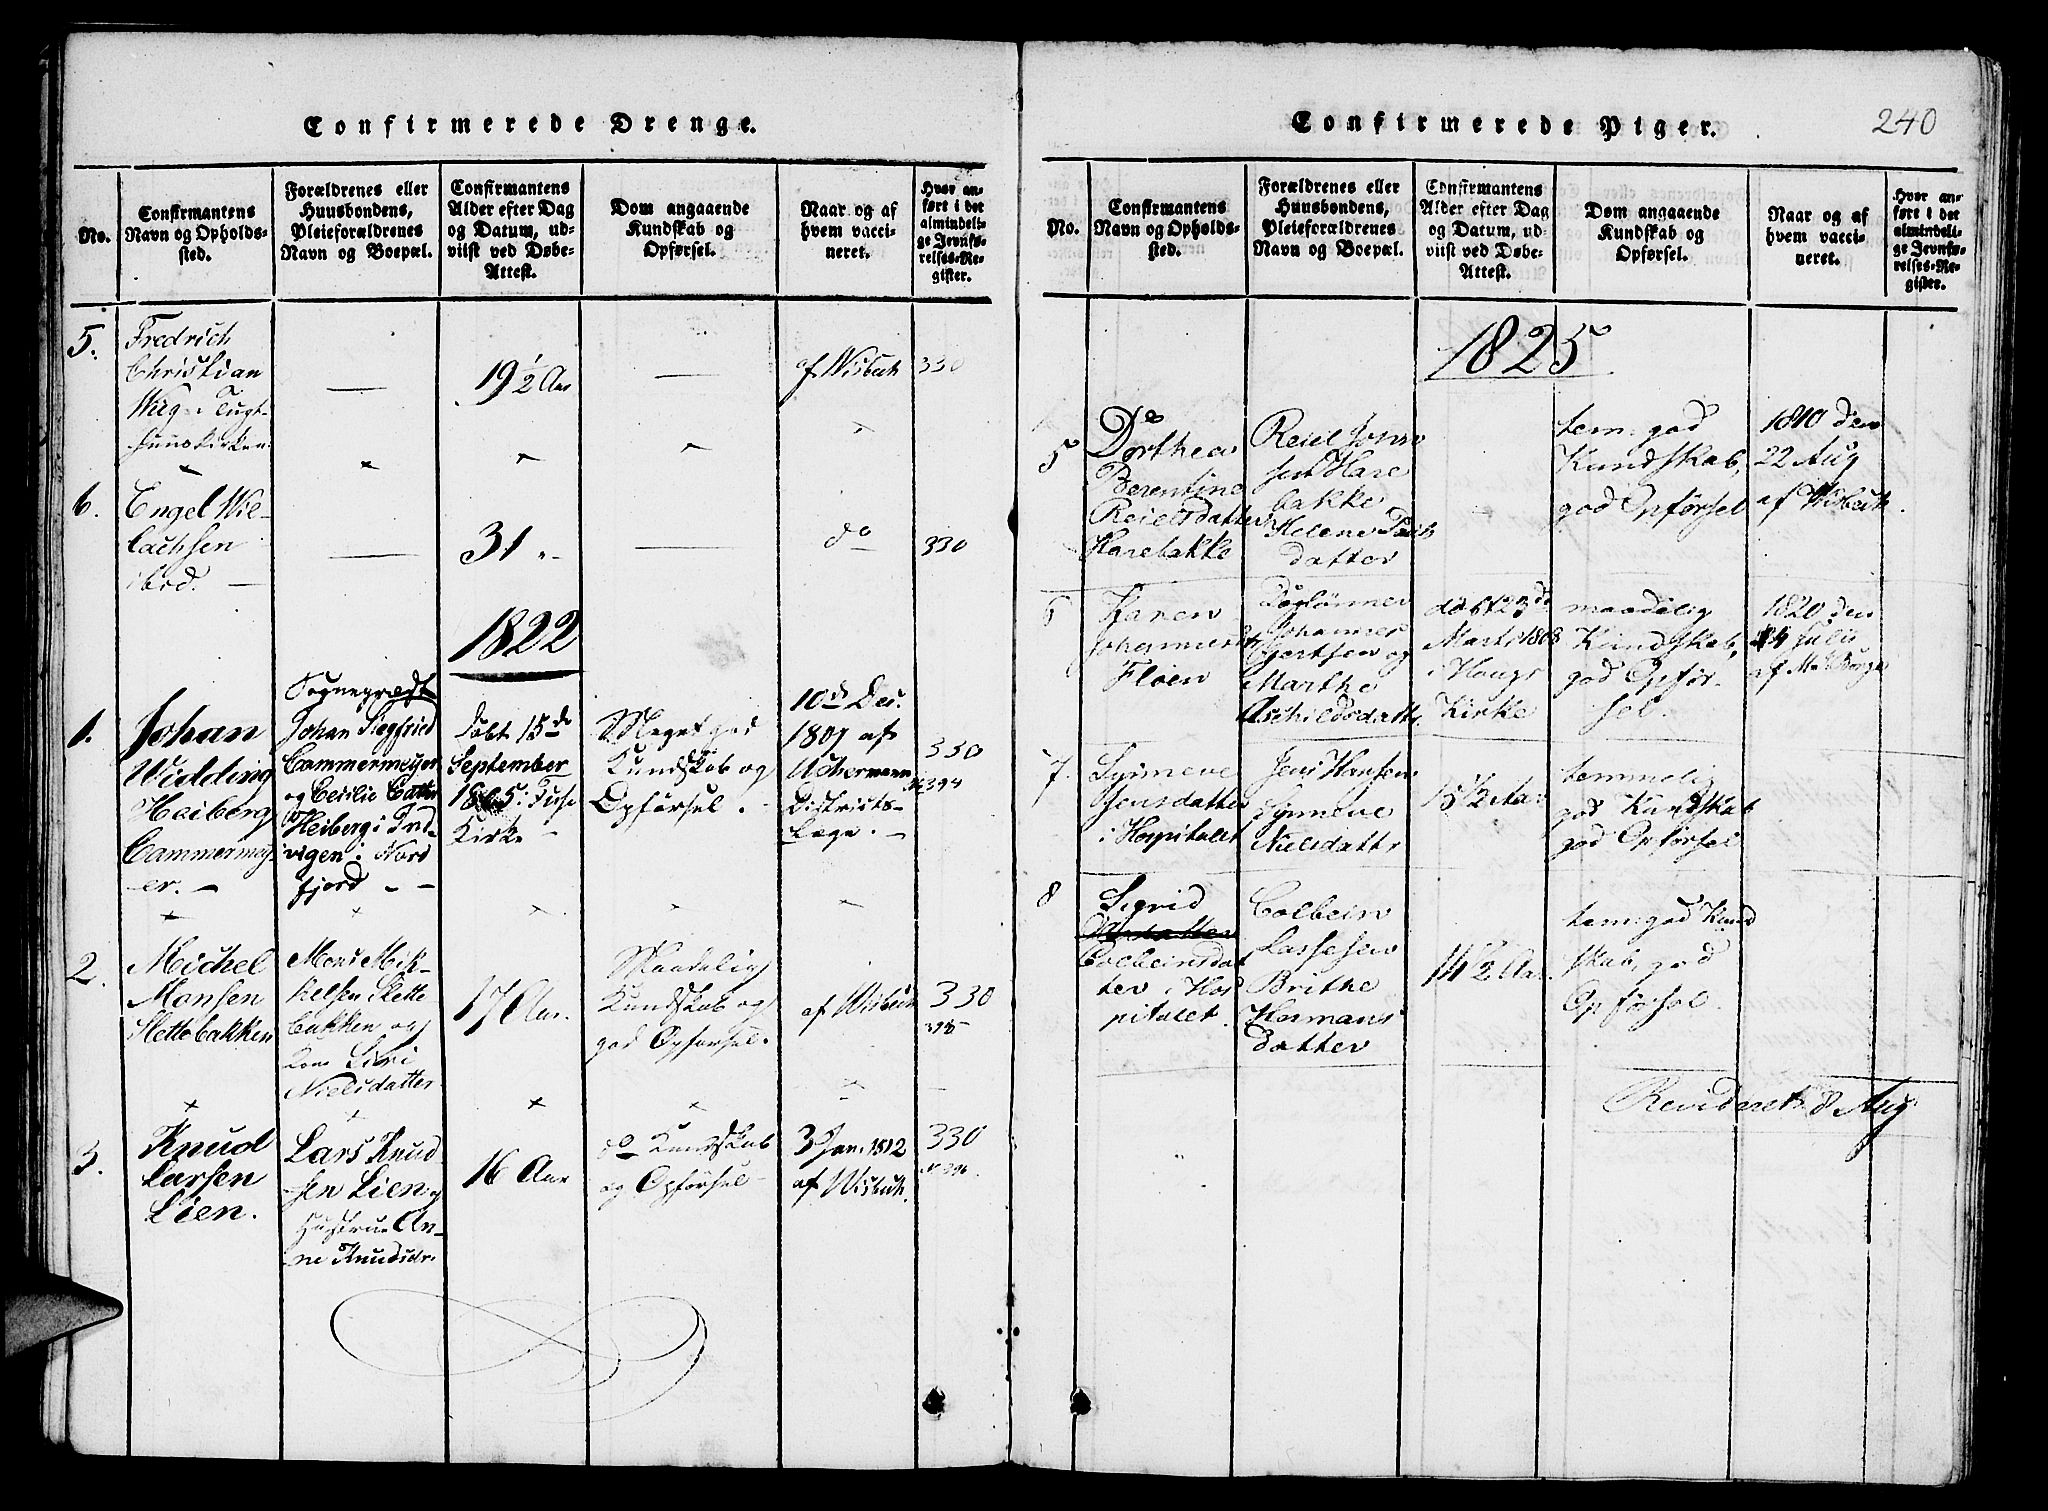 Confirmerede Drenge.
No.
Confirmantens
Navn og Opholds-
sted.
Forældrenes eller
Huusbondens,
Pleieforældrenes
Navn og Boepæl.
Confirmantens
Alder efter Dag
og Datum, ud-
viist ved Døbe-
Attest.
Dom angaaende
Kundskab og
Opførsel.
Naar og af
hvem vacci-
neret.
Hvor an-
ført i det
almindeli-
ge Jevnfø-
relses-Re-
gister.
5.
Fredrich
Christian
Tugt-
huuskirken
19 1/2 Aar
af Wisbech
330
6.
Engel Wil-
lachsen
ibid.
31 "
do
330
1822
1.
Johan
Widding
Heiberg
Cammermey-
er.
Sogneprest
Johan Siegfried
Cammermeyer
og Cecilie
Heiberg i Ind-
vigen i Nord
fjord
døbt 15de
September
Kirke
Meget god
Kundskab og
Opførsel.
10de Dec.
1807 af
Uchermann
Districts-
Læge.
330
394
2.
Michel
Monsen
Slettebakken
Mons Mik-
kelsen Slette
bakken og
Kone Siri
Nielsdatter
17 Aar.
Maadelig
Kundskab og
god Opførsel.
af Wisbech
330
395
3.
Knud
Larsen
Lien.
Lars Knud-
sen Lien og
Hustrue An-
ne Knudsdr.
16 Aar
do Kundskab
og Opførsel
3 Jan. 1812
af Wisbech.
330
396
Confirmerede Piger.
240
No.
Confirmantens
Navn og Opholds-
sted.
Forældrenes eller
Huusbondens,
Pleieforældrenes
Navn og Boepæl.
Confirmantens
Alder efter Dag
og Datum, ud-
viist ved Døbe-
Attest.
Dom angaaende
Kundskab og
Opførsel.
Naar og af
hvem vacci-
neret.
Hvor an-
ført i det
almindeli-
ge Jevnfø-
relses-Re-
gister.
1825
5
Dorthea
Berentine
Reielsdatter
Harebakke
Reiel Johan
sen Hare
bakke
Helene
datter
tem: god
Kundskab,
god Opførsel
1810 den
22 Aug
af Wisbech.
6
Karen
Johannesdtr
Fløen
Daglønner
Johannes
Gjertsen og
Marthe
Aschildsdattr
døbt 23de
Marts 1808
i Haugs
Kirke
maadelig
Kundskab,
god Opfør-
sel.
1820 den
4 Julii
af
7.
Synneve
Jensdatter
i Hospitalet
Jens Hansen
Synneve
Nielsdattr
15 1/2 Aar
temmelig
god Kundskab
god Opførsel
8
Sigrid
Colbeinsdat
ter i Hos
pitalet.
Colbein
Lassesen
Brithe
Hermans
datter
14 1/2 Aar.
tem: god Kund
skab, god
Opførsel.
Revideret 8 Aug